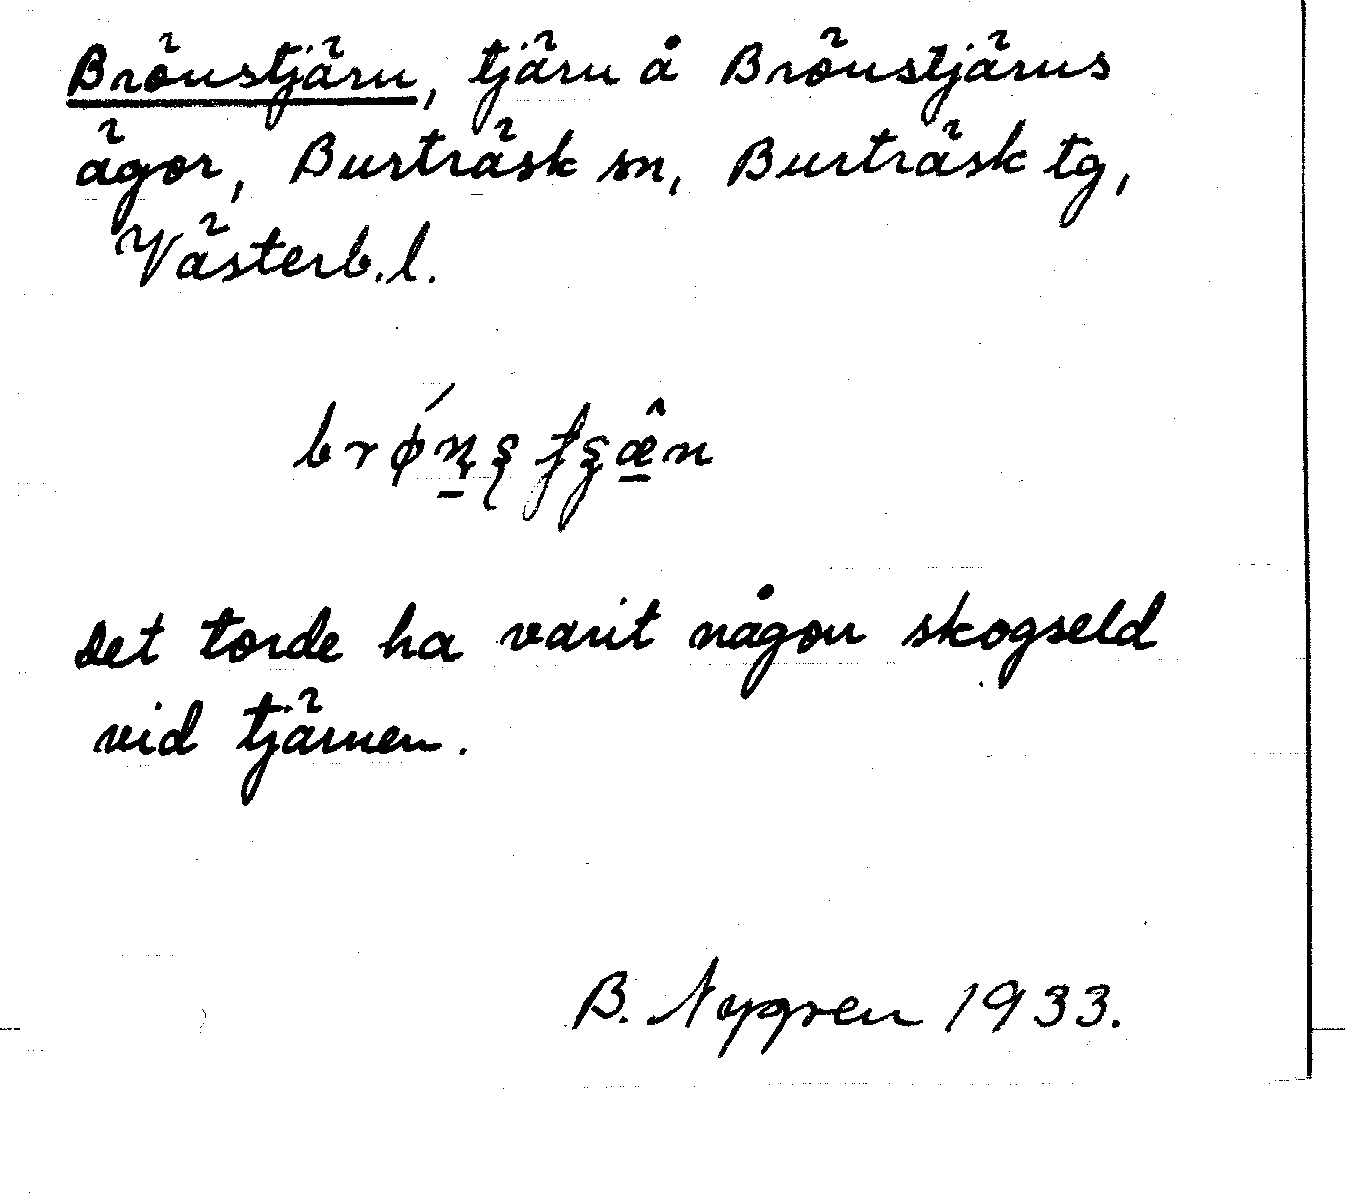 Brönstjärn, tjärn å Brönstjärns
ägor, Burträsk sn, Burträsk tg,
Västerb.l.
Det torde ha varit någon skogseld
vid tjärnen.
B. Nygren 1933.